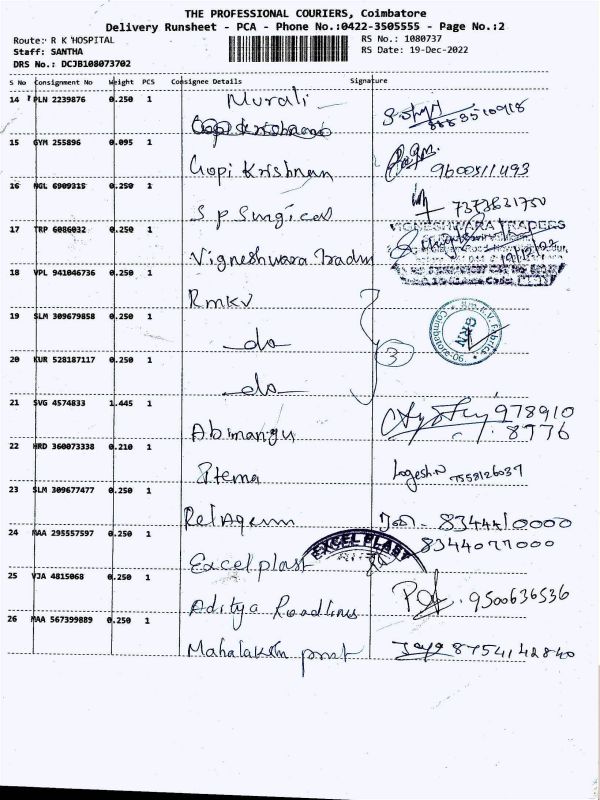 THE PROFESSIONAL COURIERS, Coimbatore
Delivery Runsheet - PCA - Phone No.:0422-3505555 - Page No.:2
Route: R K HOSPITAL
RS No.: 1080737
Staff: SANTHA
RS Date: 19-Dec-2022
DRS No.: DCJB108073702
S No Consignment No Weight PCS Consignee Details Signature
14 PLN 2239876 0.250 1 Murali
15 GYM 255896 0.095 1
Gopi Krishnan 9600511493
16 NGL 6909315 0.250 1
S P Surgical 7373821750
17 TRP 6086032 0.250 1
VIGNESHWARA TRADERS
Vigneshwara Traders
18 VPL 941046736 0.250 1
Rmkv
19 SLM 309679858 0.250 1
do
3
20 KUR 528187117 0.250 1
do
21 SVG 4574833 1.445 1
978910
Abimangu 8776
22 HRD 360073338 0.210 1
Logesh.N 7558126037
23 SLM 309677477 0.250 1
8344410000
24 MAA 295557597 0.250 1
EXCEL PLAST
8344077000
Excel plast
25 VJA 4815068 0.250 1
9500636536
Aditya Roadlines
26 MAA 567399889 0.250 1
Mahalakshmi print Jaya 8754142840